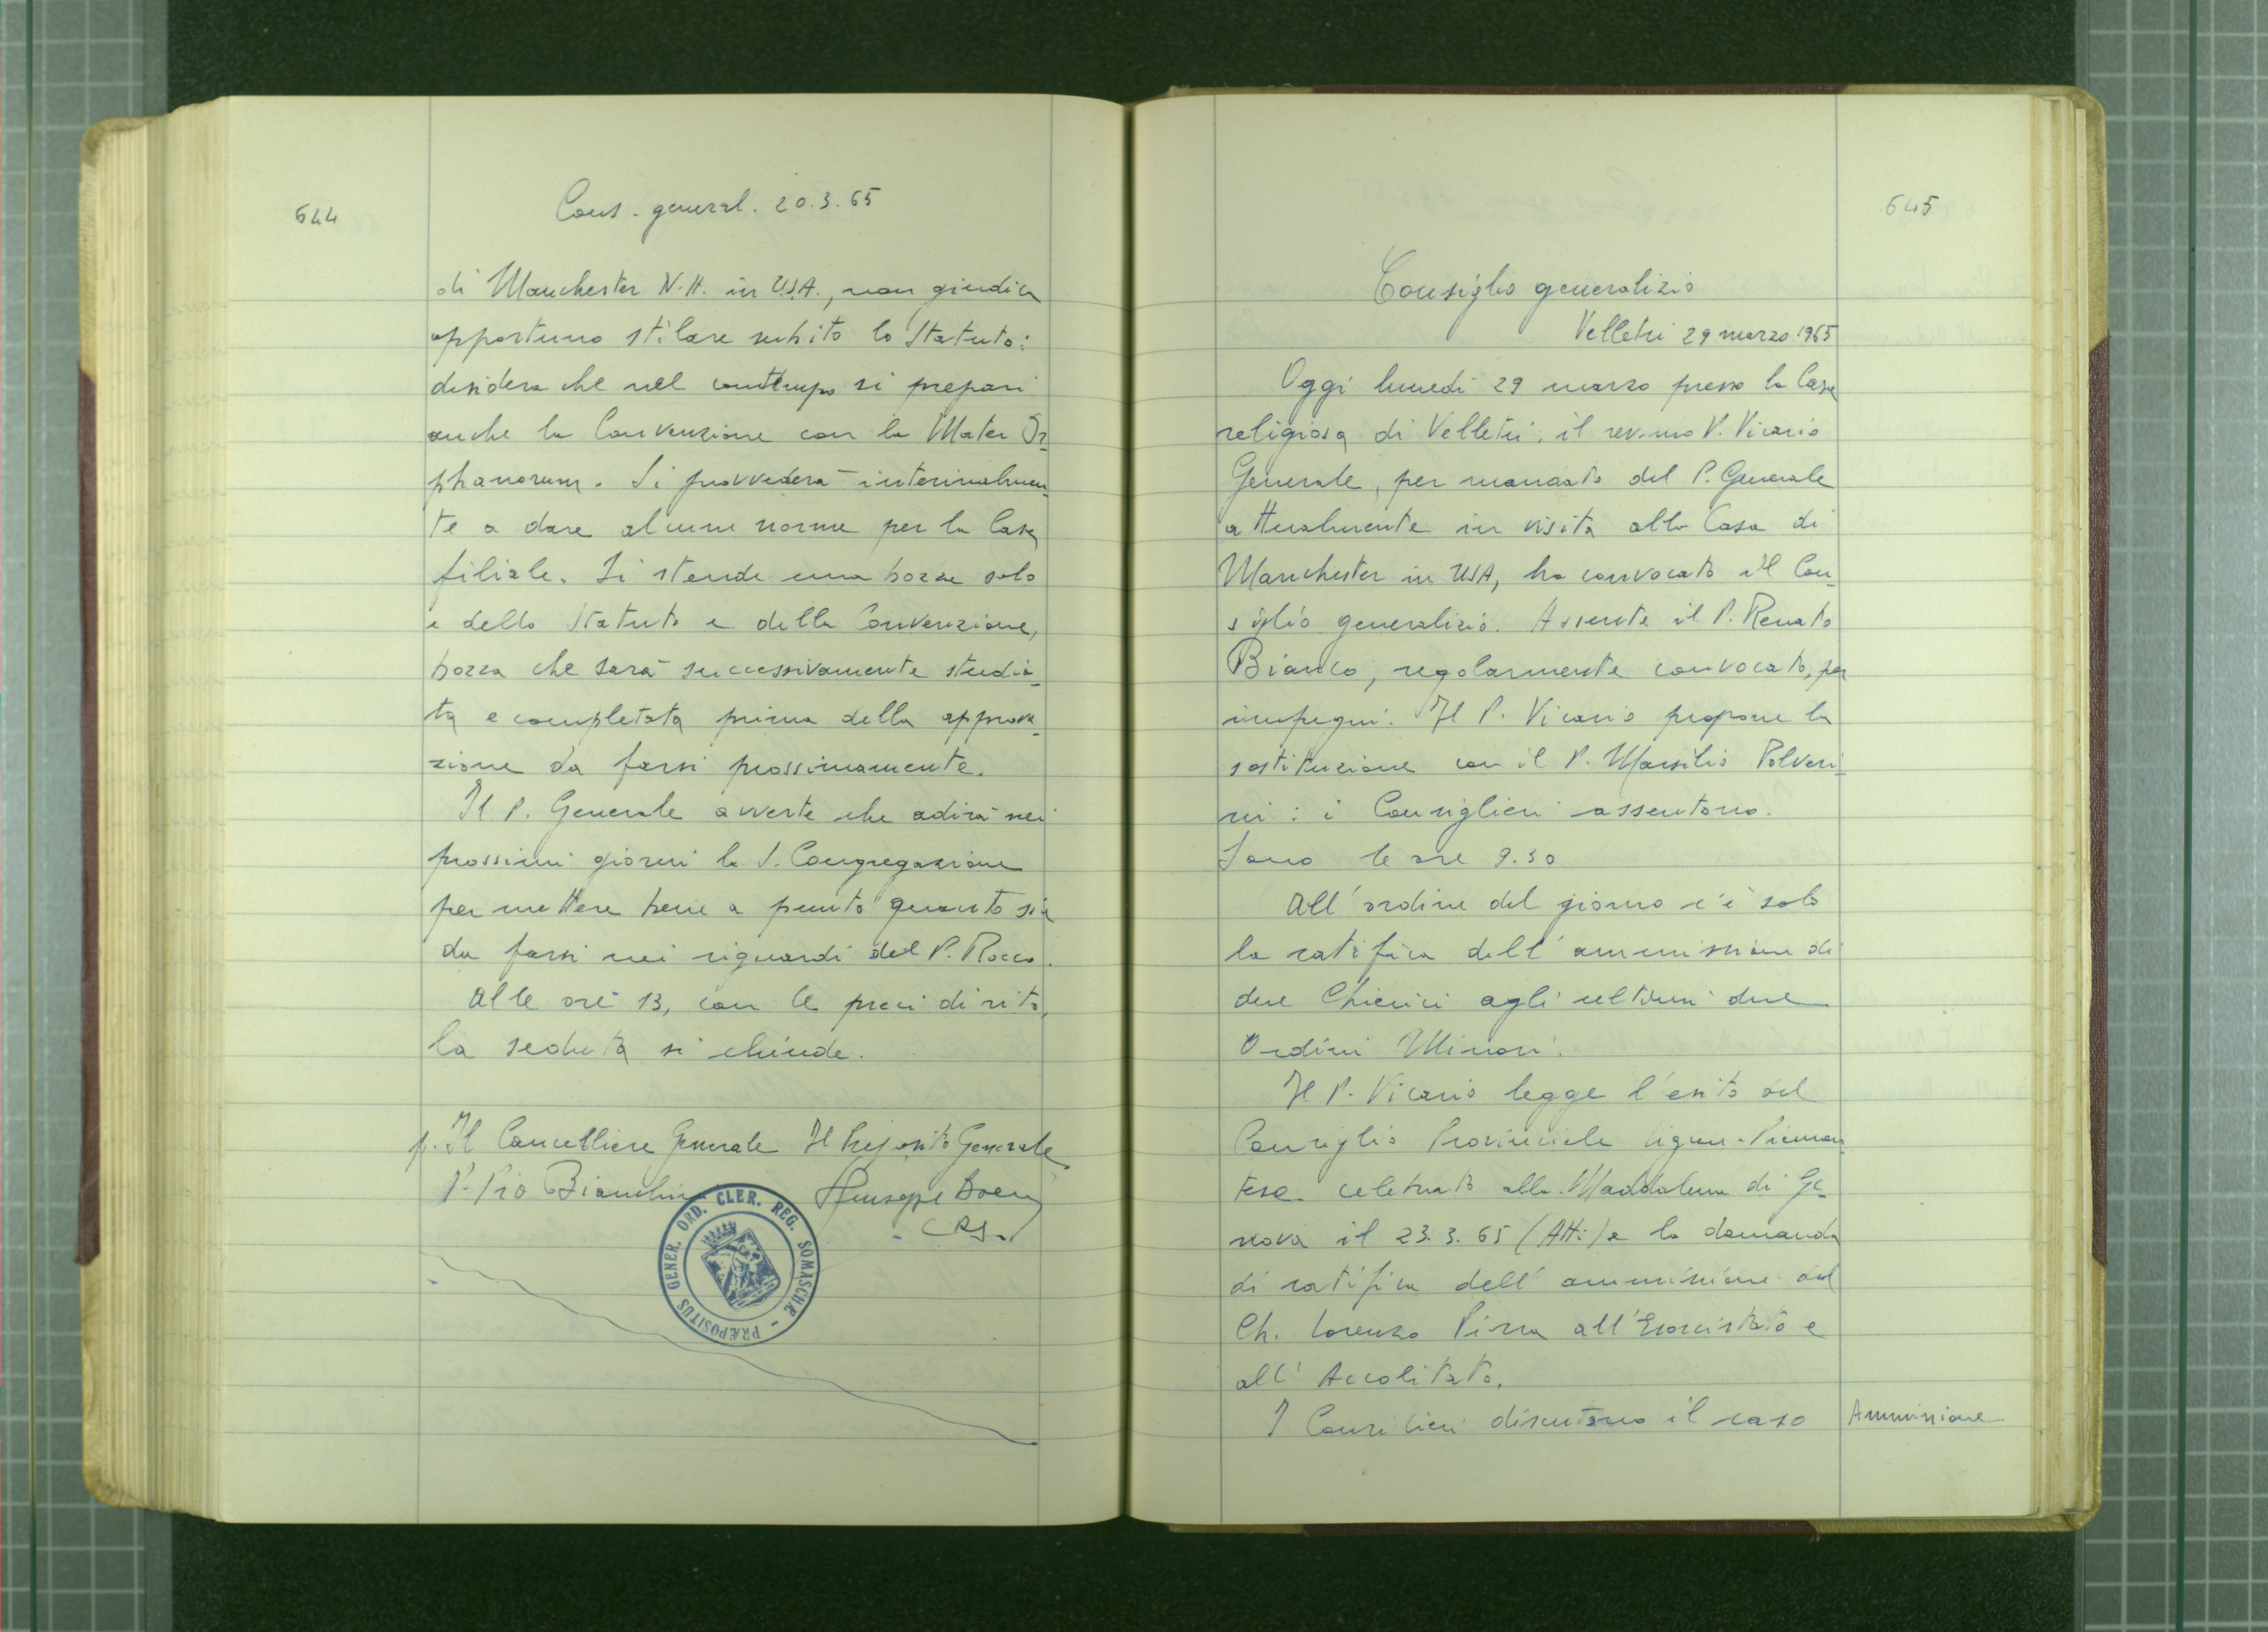 644
Cons. general. 20.3.65
di Manchester N.H. in U.S.A., non giudica
opportuno stilare subito lo Statuto:
desidera che nel contempo si prepari
anche la Convenzione con la Mater Or-
phanorum. Si provvederà interinalmen-
te a dare alcune norme per la Casa
filiale. Si stende una bozza solo
e dello Statuto e della Convenzione,
bozza che sarà successivamente studia-
ta e completata prima della approva-
zione da farsi prossimamente.
Il P. Generale avverte che adirà nei
prossimi giorni la S. Congregazione
per mettere bene a punto quanto sia
da farsi nei riguardi del P. Rocco.
Alle ore 13, con le preci di rito,
la seduta si chiude.
p. Il Cancelliere Generale Il Preposito Generale
P. Pio Bianchini Giuseppe Boeris
CRS.
PRÆPOSITUS GENER. ORD. CLER. REG. SOMASCHÆ
645
Consiglio generalizio
Velletri 29 marzo 1965
Oggi lunedì 29 marzo presso la Casa
religiosa di Velletri, il rev.mo P. Vicario
Generale, per mandato del P. Generale
attualmente in visita alla Casa di
Manchester in USA, ha convocato il Con-
siglio generalizio. Assente il P. Renato
Bianco, regolarmente convocato, per
impegni. Il P. Vicario propone la
sostituzione con il P. Marsilio Polveri-
ni: i Consiglieri assentono.
Sono le ore 9.30
All'ordine del giorno c'è solo
la ratifica dell'ammissione di
due Chierici agli ultimi due
Ordini Minori.
Il P. Vicario legge l'esito del
Consiglio Provinciale Ligure-Piemon
tese celebrato alla Maddalena di Ge-
nova il 23.3.65 (Atti) e la domanda
di ratifica dell'ammissione del
Ch. Lorenzo all'Esorcistato e
all'Accolitato.
I Consiglieri discutono il caso
Ammissione